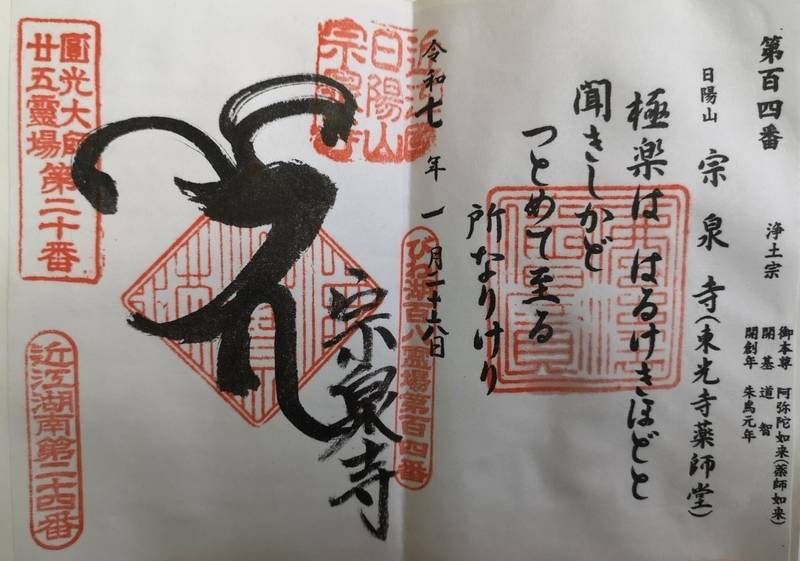 第百四番
浄土宗
御本尊 阿弥陀如来(薬師如来)
開基 道智
開創年 朱鳥元年
日陽山 宗泉寺(東光寺薬師堂)
極楽は はるけきほどと
聞きしかど
つとめて至る
所なりけり
令和七年一月二十六日
びわ湖百八霊場第百四番
近江國
日陽山
宗泉寺
宗泉寺
圓光大師
廿五霊場第二十番
近江湖南第二十四番